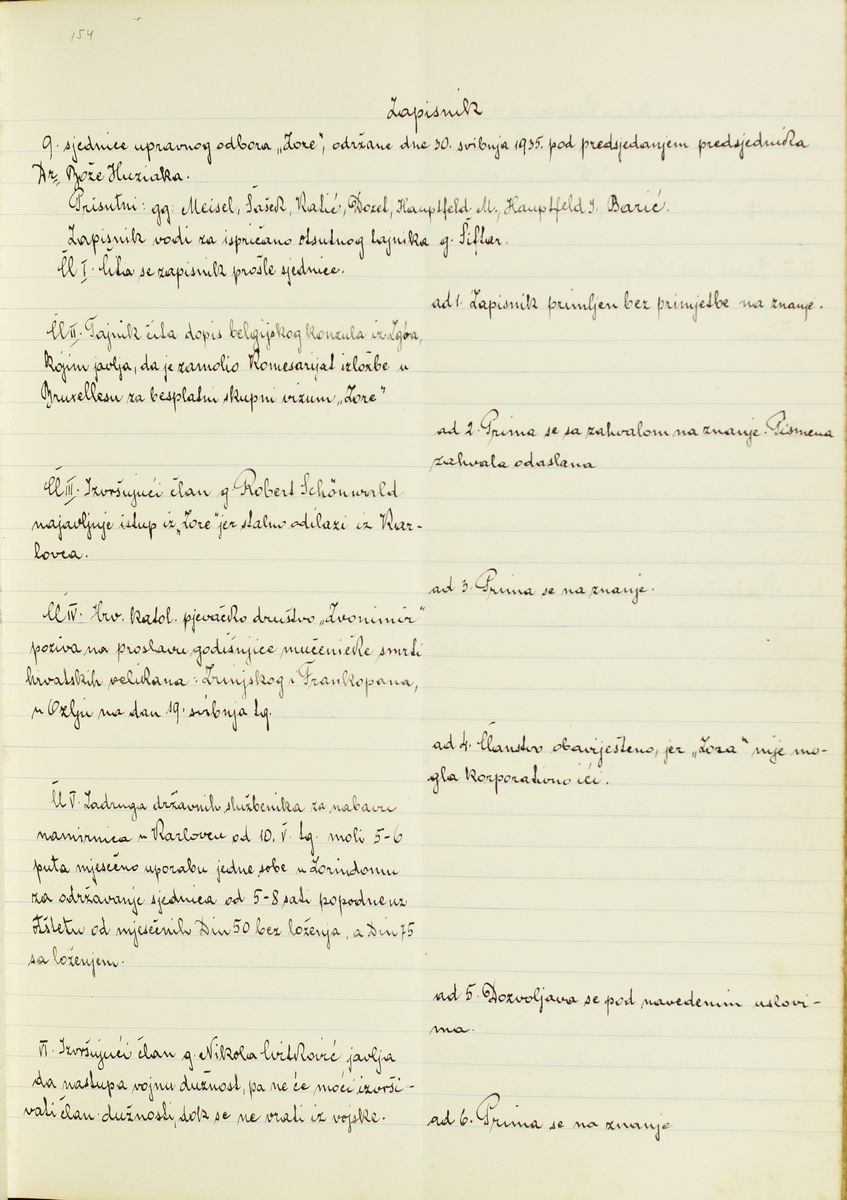 154
Zapisnik
9. sjednice upravnog odbora „Zore", održane dne 30. svibnja 1935. pod predsjedanjem predsjednika
Dr. Bože Huziaka.
Prisutni: gg: Meisel, Šašek, Katić, Dozet, Hauptfeld M., Hauptfeld I. Barić.
Zapisnik vodi za ispričano otsutnog tajnika g. Šiftar.
Čl I. Čita se zapisnik prošle sjednice.
ad 1. Zapisnik primljen bez primjetbe na znanje.
Čl II. Tajnik čita dopis belgijskog konzula iz Zgba,
kojim javlja, da je zamolio Komesarijat izložbe u
Bruxellesu za besplatni skupni vizum „Zore"
ad 2. Prima se sa zahvalom na znanje. Pismena
zahvala odaslana
Čl III. Izvršujući član g. Robert Schönwald
najavljuje istup iz „Zore" jer stalno odilazi iz Kar-
lovca.
ad 3. Prima se na znanje.
Čl IV. Hrv. katol. pjevačko društvo „Zvonimir"
poziva na proslavu godišnjice mučeničke smrti
hrvatskih velikana: Zrinjskog i Frankopana,
u Ozlju na dan 19. svibnja tg.
ad 4. Članstvo obaviješteno, jer „Zora" nije mo-
gla korporativno ići.
Čl V. Zadruga državnih službenika za nabavu
namirnica u Karlovcu od 10. V. tg. moli 5-6
puta mjesečno uporabu jedne sobe u Zorindomu
za održavanje sjednica od 5-8 sati popodne uz
otštetu od mjesečnih Din 50 bez loženja, a Din 75
sa loženjem.
ad 5. Dozvoljava se pod navedenim uslovi-
ma.
VI. Izvršujući član g. Nikola Cvitković javlja
da nastupa vojnu dužnost, pa ne će moći izvrši-
vati član. dužnosti, dok se ne vrati iz vojske.
ad 6. Prima se na znanje